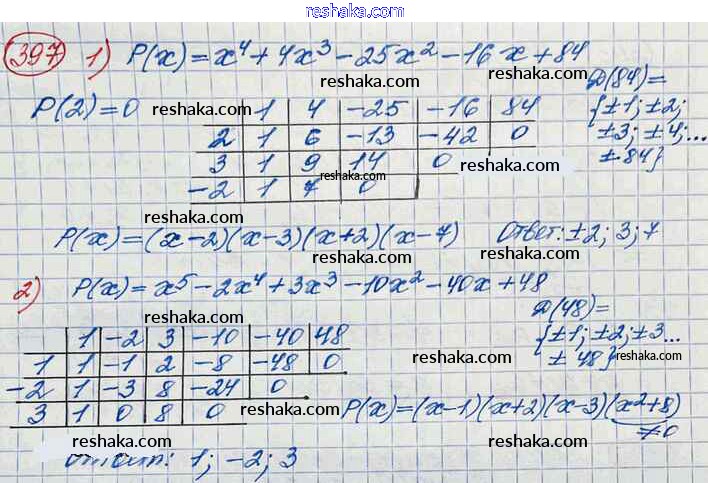 reshaka.com
397 1) P(x)=x⁴+4x³-25x²-16x+84
reshaka.com reshaka.com
P(2)=0 reshaka.com
Д(84)=
{±1; ±2;
±3; ±4;...
±84}
1 4 -25 -16 84
2 1 6 -13 -42 0
3 1 9 14 0
-2 1 7 0
reshaka.com reshaka.com
reshaka.com
reshaka.com
P(x)=(x-2)(x-3)(x+2)(x-7) Ответ: ±2; 3; 7
reshaka.com reshaka.com
2) P(x)=x⁵-2x⁴+3x³-10x²-40x+48
reshaka.com reshaka.com
Д(48)=
{±1; ±2; ±3...
±48} reshaka.com
1 -2 3 -10 -40 48
1 1 -1 2 -8 -48 0
-2 1 -3 8 -24 0
3 1 0 8 0
reshaka.com
reshaka.com
P(x)=(x-1)(x+2)(x-3)(x²+8)
≠0
reshaka.com reshaka.com
ответ: 1; -2; 3
reshaka.com